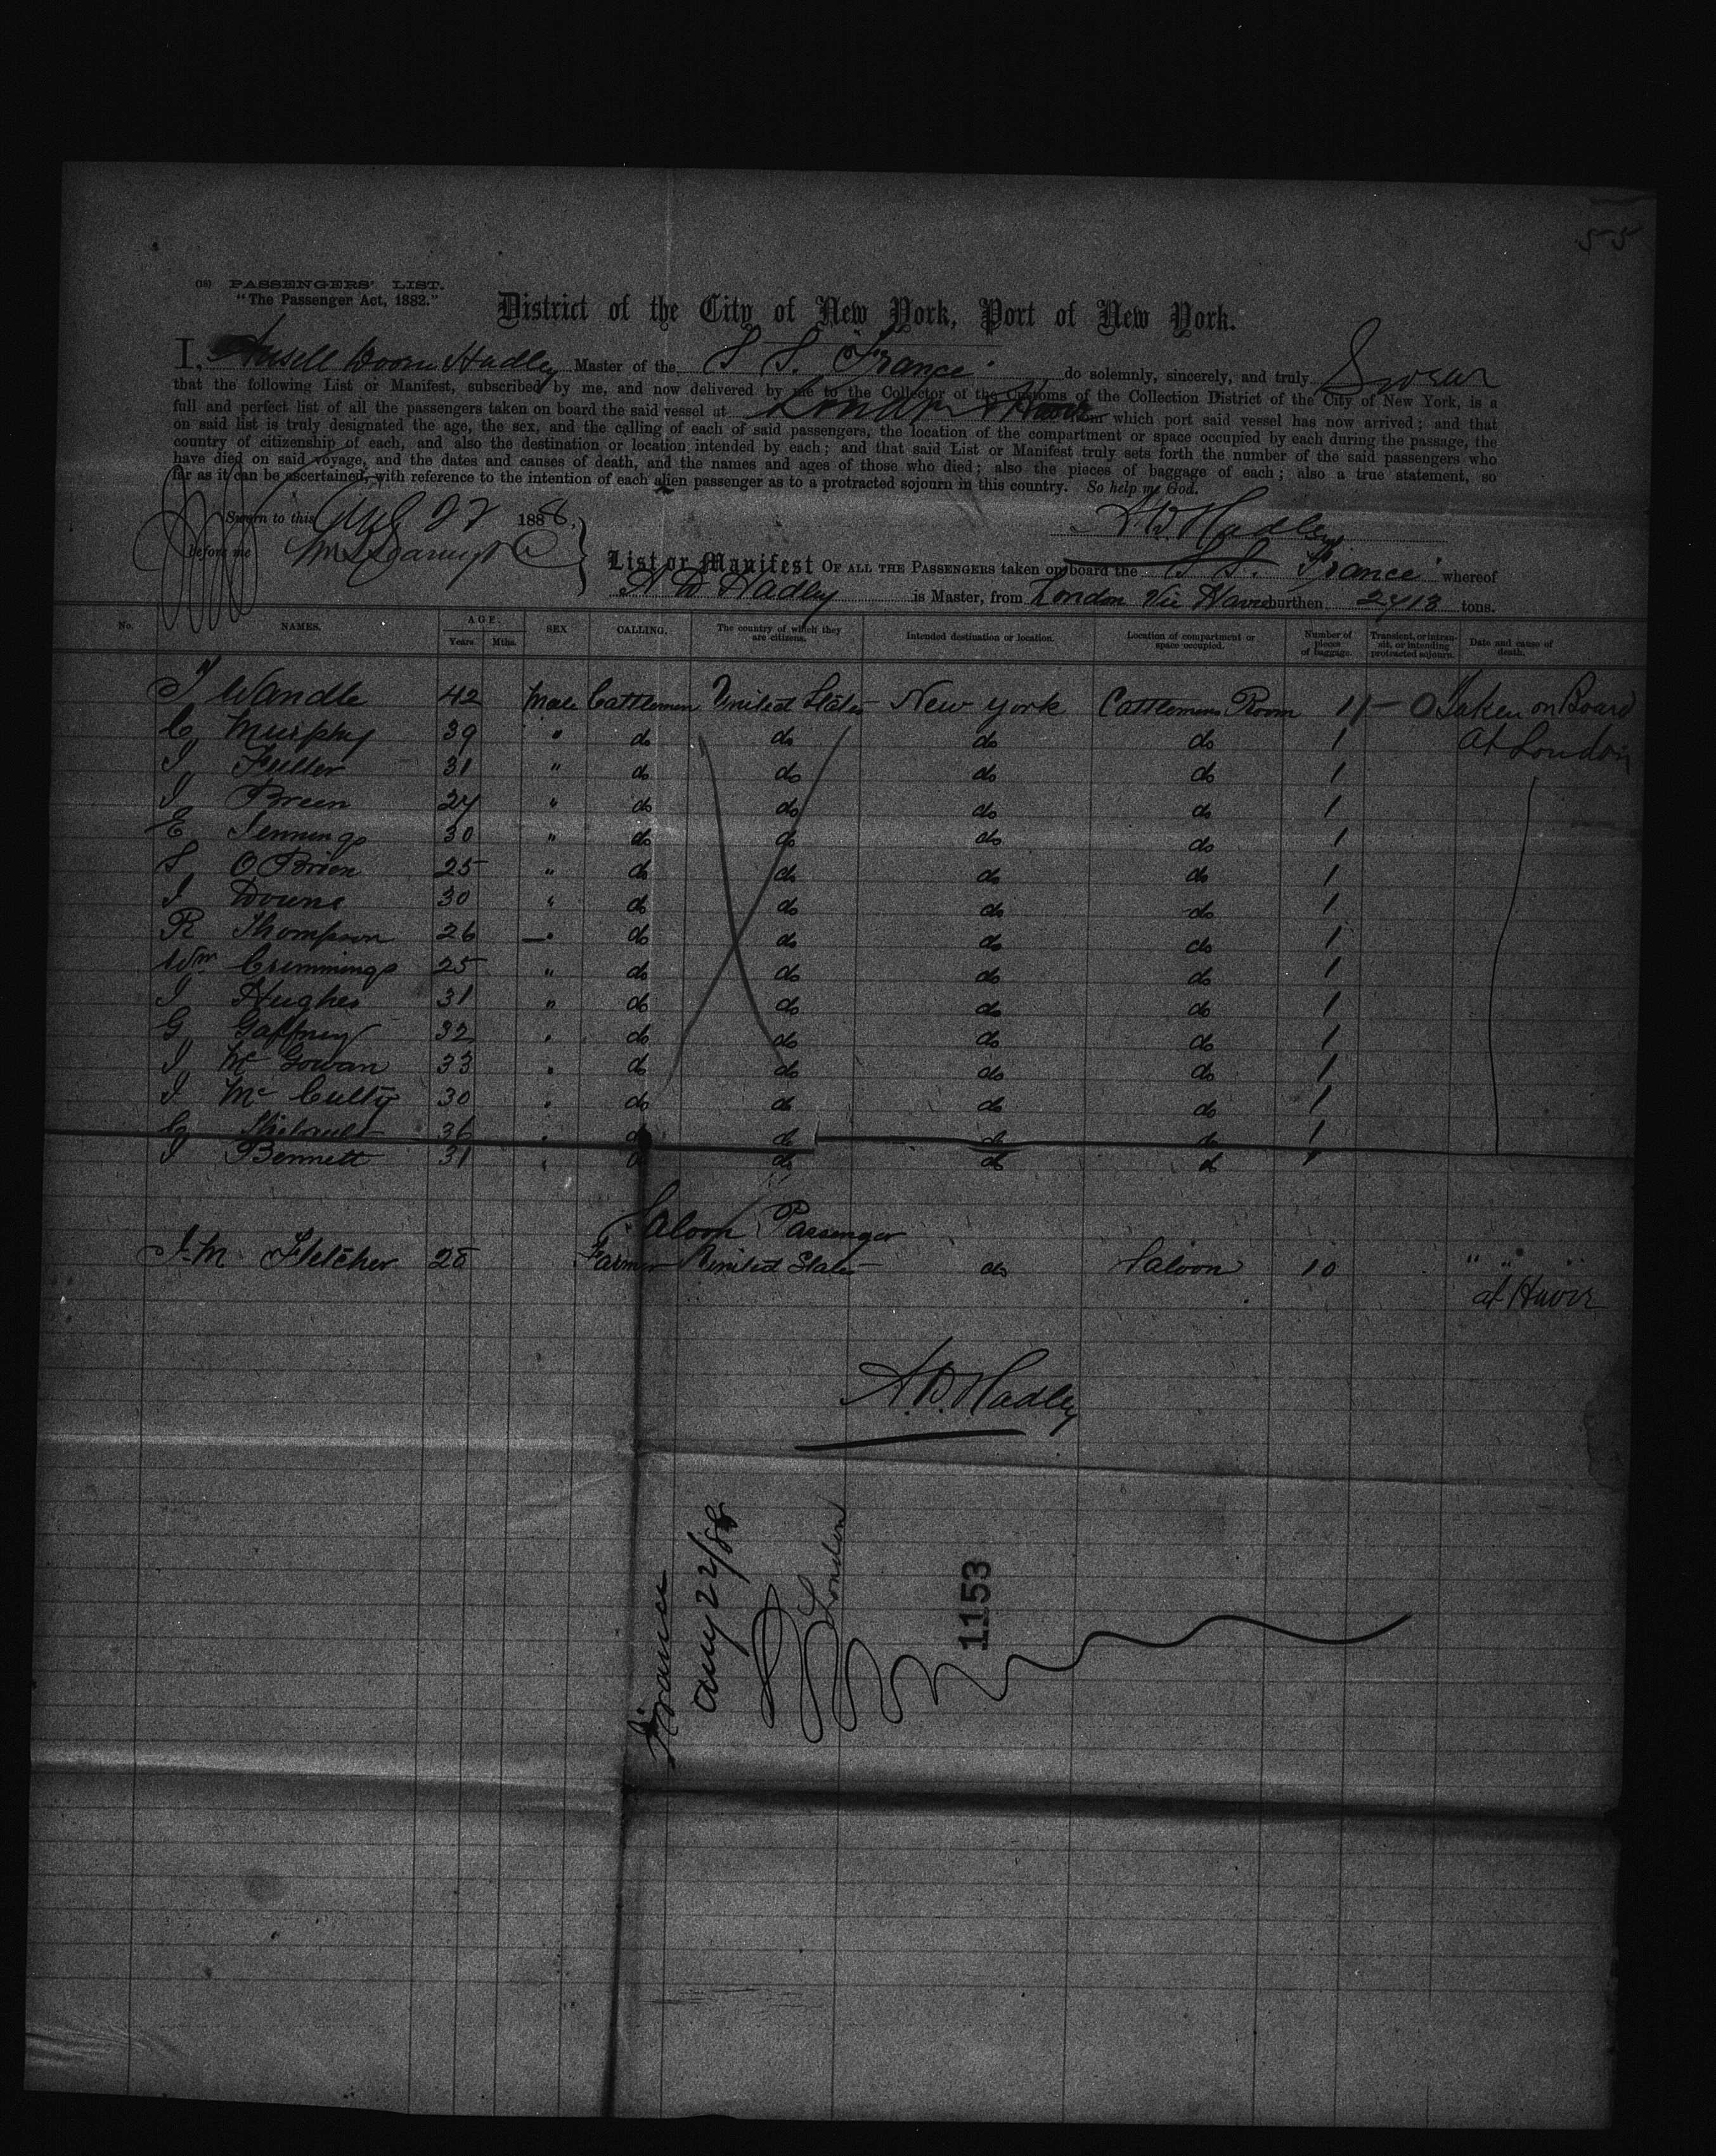 55
(18) PASSENGERS' LIST.
"The Passenger Act, 1882."
District of the City of New York, Port of New York.
I, Hadley Master of the S S. "France" do solemnly, sincerely, and truly Swear
that the following List or Manifest, subscribed by me, and now delivered by me to the Collector of the Customs of the Collection District of the City of New York, is a
full and perfect list of all the passengers taken on board the said vessel at London & Havre from which port said vessel has now arrived; and that
on said list is truly designated the age, the sex, and the calling of each of said passengers, the location of the compartment or space occupied by each during the passage, the
country of citizenship of each, and also the destination or location intended by each; and that said List or Manifest truly sets forth the number of the said passengers who
have died on said voyage, and the dates and causes of death, and the names and ages of those who died; also the pieces of baggage of each; also a true statement, so
far as it can be ascertained, with reference to the intention of each alien passenger as to a protracted sojourn in this country. So help me God.
Sworn to this Aug 22 1888,
before me
A.D. Hadley
List or Manifest OF ALL THE PASSENGERS taken on board the S S. "France" whereof
A D Hadley is Master, from London Via Havre burthen 2413 tons.
No. NAMES. AGE. Years. Mths. SEX CALLING. The country of which they are citizens. Intended destination or location. Location of compartment or space occupied. Number of pieces of baggage. Transient, or in transit, or intending protracted sojourn. Date and cause of death.
T Wandle 42 Male Cattlemen United States New York Cattlemens Room 1 Taken on Board
C Murphy 39 " do do do do 1 At London
J Fuller 31 " do do do do 1
J Breen 24 " do do do do 1
E Jennings 30 " do do do do 1
S O'Brien 25 " do do do do 1
J Downs 30 " do do do do 1
R Thompson 26 " do do do do 1
Wm Crimmings 25 " do do do do 1
J Hughes 31 " do do do do 1
G Gaffney 32 " do do do do 1
J Mc Gowan 33 " do do do do 1
J Mc Culty 30 " do do do do 1
C Thibault 36 " do do do do 1
J Bennett 31 " do do do do 1
Saloon Passenger
J. M Fletcher 28 Farmer United States do Saloon 10 " " "
at Havre
A.D. Hadley
France
Aug 22/88
London
1153